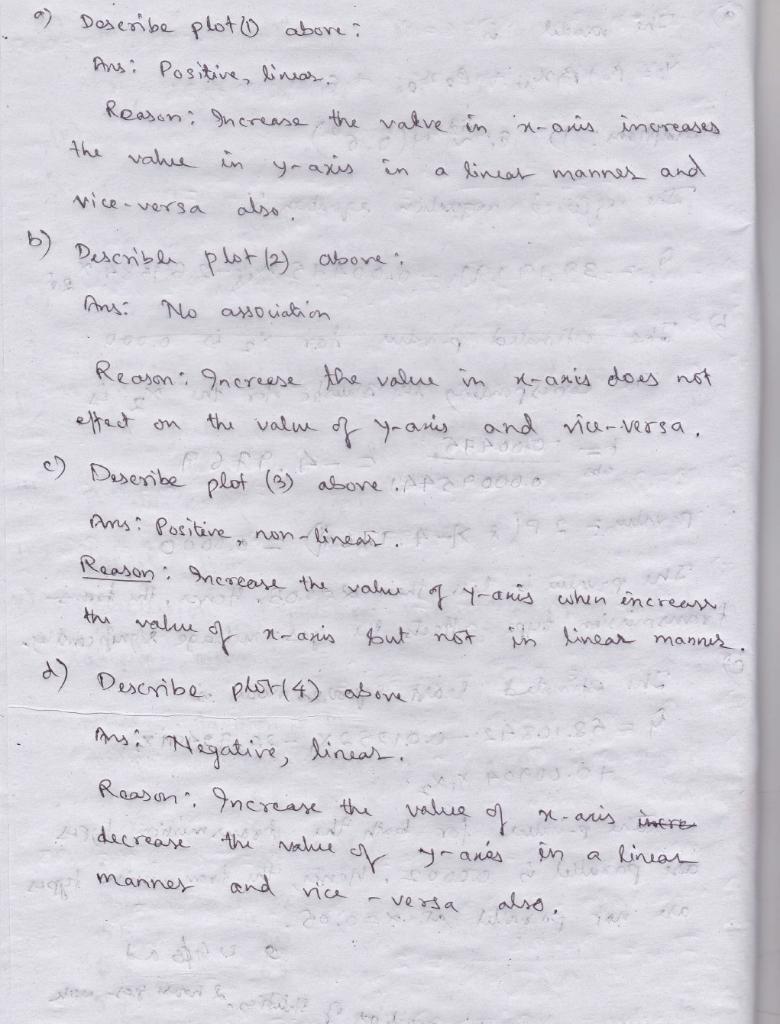 a) Describe plot (1) above :
Ans : Positive, linear.
Reason : Increase the value in x-axis increases
the value in y-axis in a linear manner and
vice-versa also.
b) Describe plot (2) above :
Ans : No association
Reason : Increase the value in x-axis does not
effect on the value of y-axis and vice-versa.
c) Describe plot (3) above .
Ans : Positive, non-linear.
Reason : Increase the value of y-axis when increase
the value of x-axis but not in linear manner.
d) Describe plot (4) above
Ans : Negative, linear.
Reason : Increase the value of x-axis incre
decrease the value of y-axes in a linear
manner and vice - versa also.